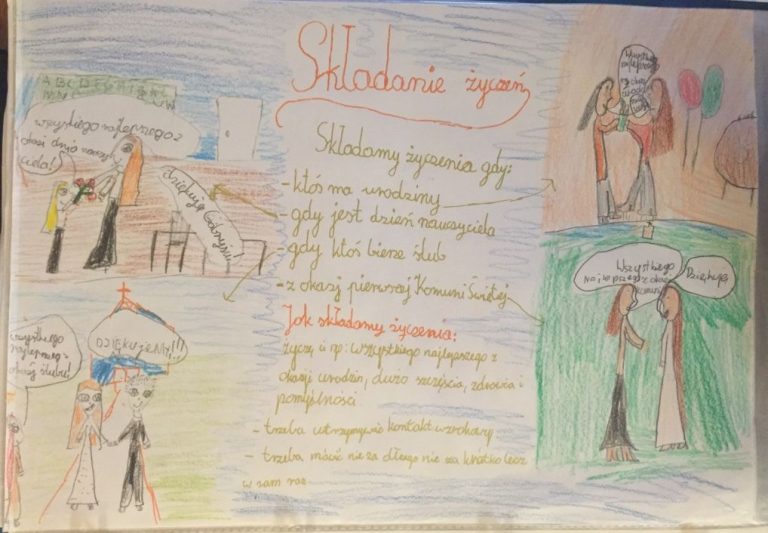 Składanie życzeń
Składamy życzenia gdy:
- ktoś ma urodziny
- gdy jest dzień nauczyciela
- gdy ktoś bierze ślub
- z okazj pierwszej Komuni Świętej
Jak składamy życzenia:
życzę ci np: wszystkiego najlepszego z
okazji urodzin, dużo szczęścia, zdrowia i
pomyślności
- trzeba utrzymywać kontakt wzrokowy
- trzeba mówić nie za długo nie za krótko lecz
w sam raz
A B C D E F G H I J K L
wszystkiego najlepszego z
okazi dnia nauczy
ciela!
dziękuję Gabrysiu!
wszystkiego
najlepszego z
okazji ślubu!
DZIĘKUJEMY!!!
Wszystkiego
najlepszego
Wszystkiego
najlepszego z okazji
Dziękuję